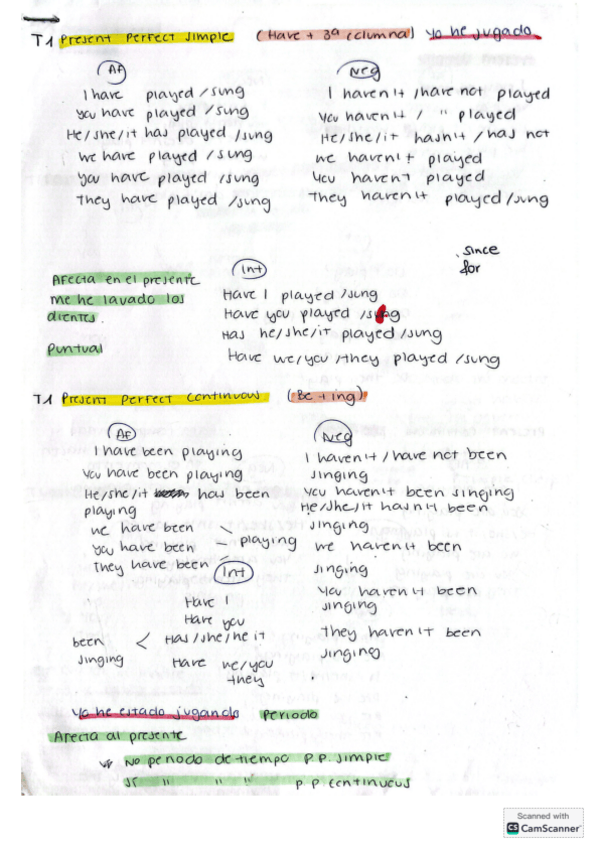 T1 Present Perfect simple (Have + 3ª columna) Yo he jugado
Af
I have played / sung
You have played / sung
He/she/it has played / sung
we have played / sung
You have played / sung
They have played / sung
Neg
I haven't / have not played
You haven't / " played
He/she/it hasn't / has not
we haven't played
You haven't played
They haven't played / sung
. since
for
Afecta en el presente
me he lavado los
dientes.
Puntual
Int
Have I played / sung
Have you played / sung
Has he/she/it played / sung
Have we/you/they played / sung
T1 Present Perfect Continuous (Be + ing)
Af
I have been playing
You have been playing
He/she/it has been
playing
we have been
You have been - playing
They have been
Neg
I haven't / have not been
singing
You haven't been singing
He/she/it hasn't been
singing
we haven't been
singing
You haven't been
singing
They haven't been
singing
Int
Have I
Have you
Has / she/he it
Have we/you
they
been <
singing
Yo he estado jugando Periodo
Afecta al presente
No periodo de tiempo P.P. simple
Sí " " " p.p continuous
Scanned with
CS CamScanner